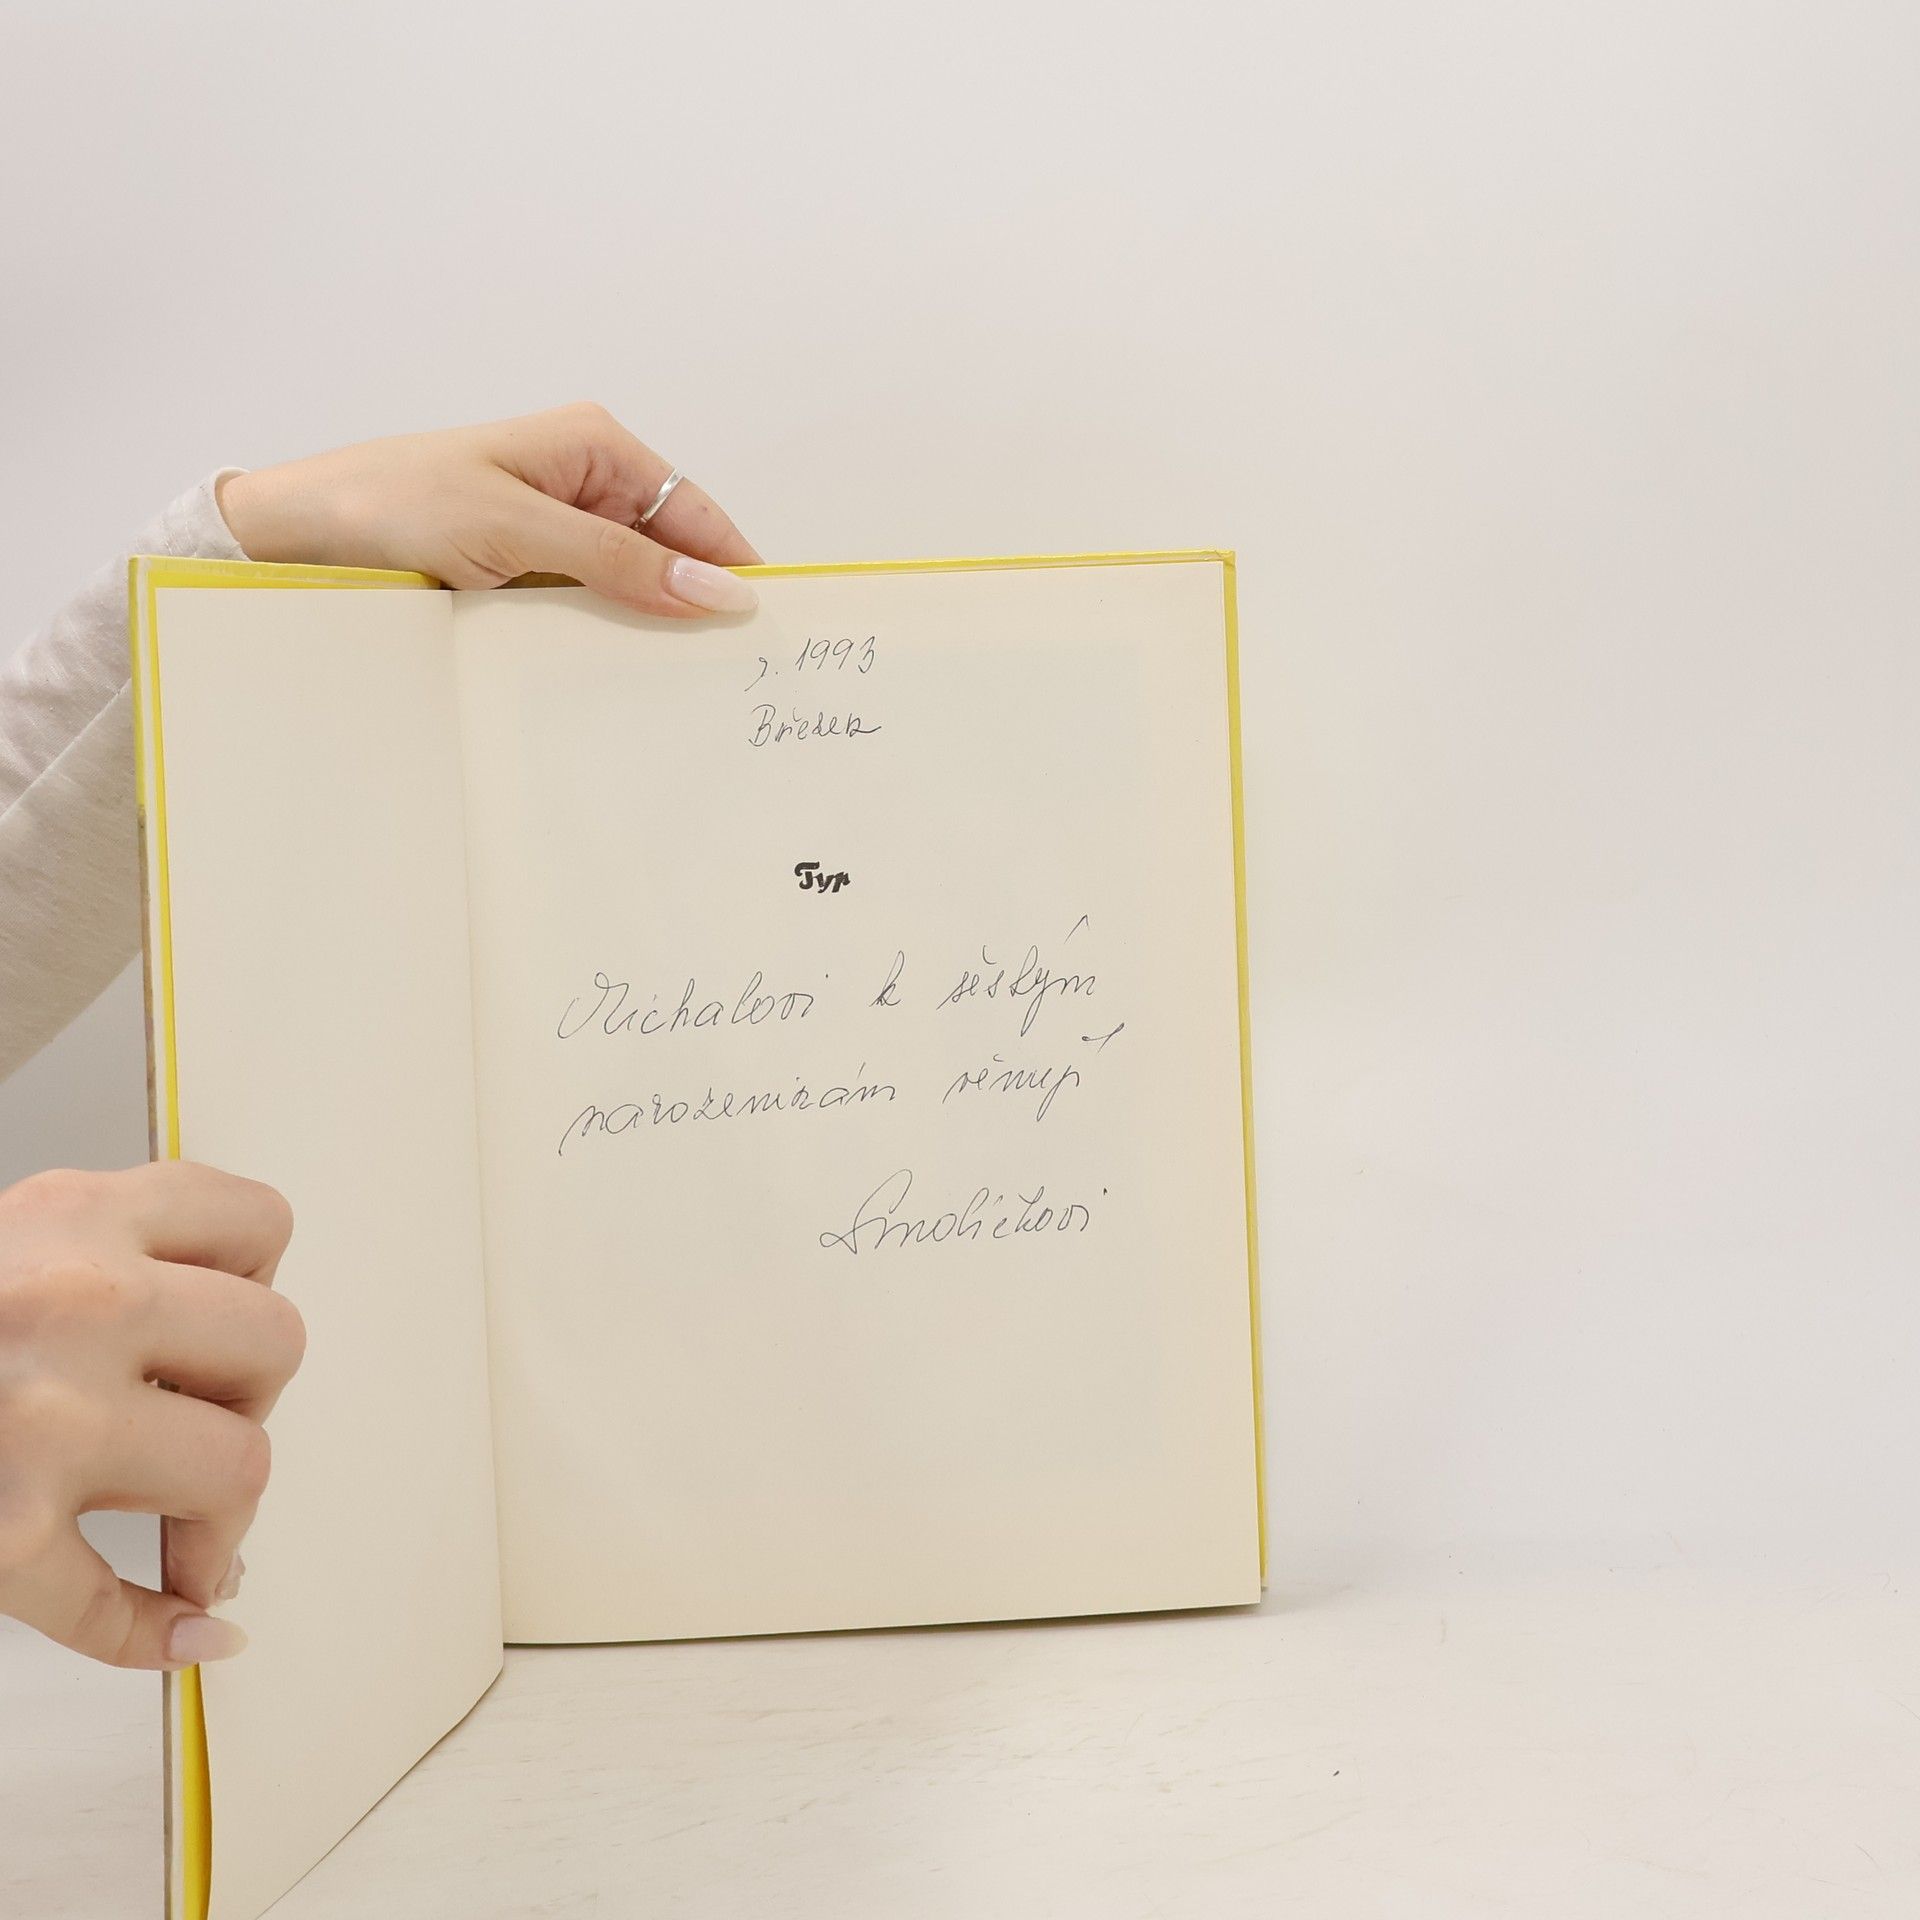 r. 1993
Březen
Typ
Michalovi k šěstým
narozeninám věnují
Smolíčkovi